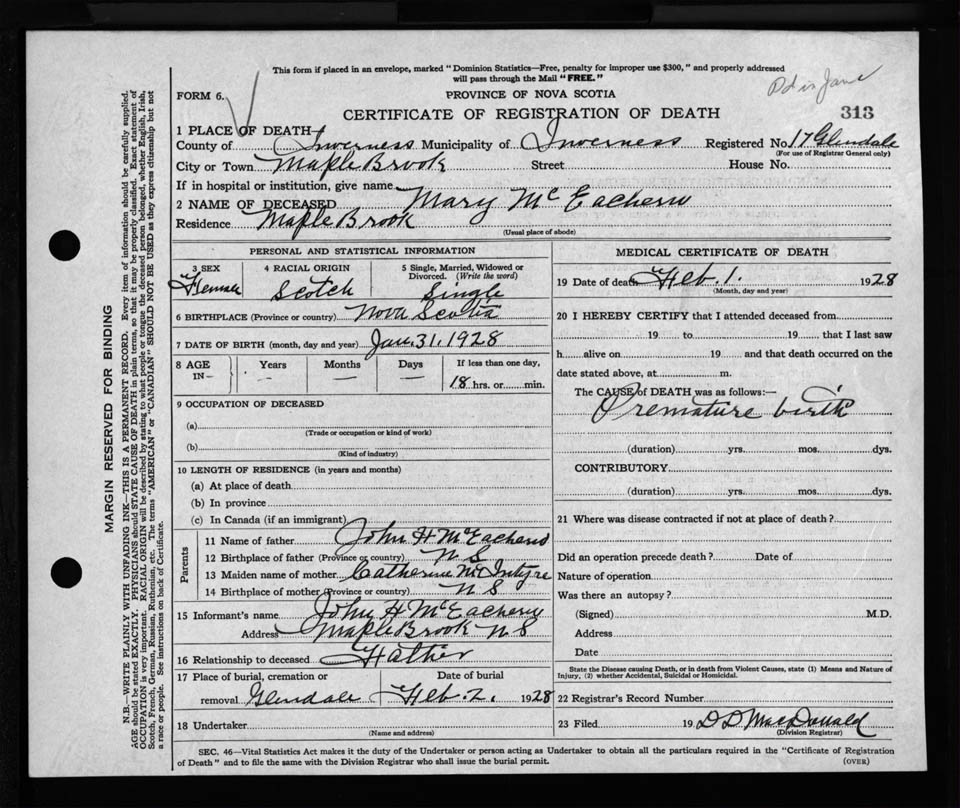 This form if placed in an envelope, marked "Dominion Statistics—Free, penalty for improper use $300," and properly addressed
will pass through the Mail "FREE."
FORM 6.
PROVINCE OF NOVA SCOTIA
CERTIFICATE OF REGISTRATION OF DEATH
313
1 PLACE OF DEATH—
County of Inverness Municipality of Inverness Registered No. 17 Glendale
(For use of Registrar General only)
City or Town Maple Brook Street House No.
If in hospital or institution, give name
2 NAME OF DECEASED Mary McEachern
Residence Maple Brook
(Usual place of abode)
PERSONAL AND STATISTICAL INFORMATION
3 SEX 4 RACIAL ORIGIN 5 Single, Married, Widowed or
Divorced. (Write the word)
Scotch Single
6 BIRTHPLACE (Province or country) Nova Scotia
7 DATE OF BIRTH (month, day and year) Jan. 31. 1928
8 AGE Years Months Days If less than one day,
IN— — — — 18 hrs. or min.
9 OCCUPATION OF DECEASED
(a)
(Trade or occupation or kind of work)
(b)
(Kind of industry)
10 LENGTH OF RESIDENCE (in years and months)
(a) At place of death
(b) In province
(c) In Canada (if an immigrant)
Parents
11 Name of father John H McEachern
12 Birthplace of father (Province or country) N S
13 Maiden name of mother Catherine McIntyre
14 Birthplace of mother (Province or country) N S
15 Informant's name John H McEachern
Address Maple Brook N S
16 Relationship to deceased Father
17 Place of burial, cremation or Date of burial
removal Glendale Feb. 2. 1928
18 Undertaker
(Name and address)
MEDICAL CERTIFICATE OF DEATH
19 Date of death Feb. 1. 1928
(Month, day and year)
20 I HEREBY CERTIFY that I attended deceased from
19 to 19 that I last saw
h alive on 19 and that death occurred on the
date stated above, at m.
The CAUSE of DEATH was as follows:—
Premature birth
(duration) yrs. mos. dys.
CONTRIBUTORY
(duration) yrs. mos. dys.
21 Where was disease contracted if not at place of death?
Did an operation precede death? Date of
Nature of operation
Was there an autopsy?
(Signed) M.D.
Address
Date
State the Disease causing Death, or in death from Violent Causes, state (1) Means and Nature of
Injury, (2) whether Accidental, Suicidal or Homicidal.
22 Registrar's Record Number
23 Filed 19 D D MacDonald
(Division Registrar)
SEC. 46—Vital Statistics Act makes it the duty of the Undertaker or person acting as Undertaker to obtain all the particulars required in the "Certificate of Registration
of Death" and to file the same with the Division Registrar who shall issue the burial permit.
(OVER)
MARGIN RESERVED FOR BINDING
N.B.—WRITE PLAINLY WITH UNFADING INK—THIS IS A PERMANENT RECORD. Every item of information should be carefully supplied.
AGE should be stated EXACTLY. PHYSICIANS should STATE CAUSE OF DEATH in plain terms, so that it may be properly classified. Exact statement of
OCCUPATION is very important. RACIAL ORIGIN will be described by stating to what people or tongue the deceased person belonged, whether English, Irish,
Scotch, French, German, Russian, Ruthenian, etc. The terms "AMERICAN" or "CANADIAN" SHOULD NOT BE USED as they express citizenship but not
a race or people. See instructions on back of Certificate.